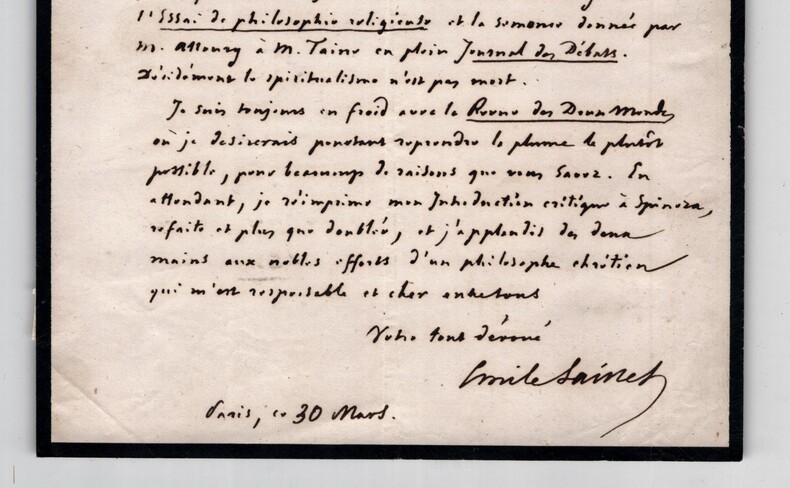 l'Essai de philosophie religieuse et la semonce donnée par
M. Alloury à M. Taine en plein Journal des Débats.
Décidément le spiritualisme n'est pas mort.
Je suis toujours en froid avec la Revue des Deux Mondes
où je desirerais pourtant reprendre la plume le plutôt
possible, pour beaucoup de raisons que vous savez. En
attendant, je réimprime mon Introduction critique à Spinoza,
refaite et plus que doublée, et j'applaudis des deux
mains aux nobles efforts d'un philosophe chrétien
qui m'est respectable et cher entre tous
Votre tout dévoué
Emile Saisset
Paris, ce 30 Mars.